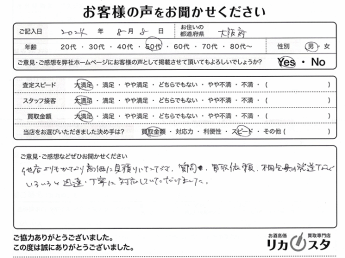 お客様の声をお聞かせください
ご記入日 2024年 8月 8日 お住いの都道府県 大阪府
年齢 20代・30代・40代・50代・60代・70代・80代〜 性別 男・女
ご意見・ご感想を弊社ホームページにお客様の声として掲載させて頂いてもよろしいでしょうか? Yes・No
査定スピード 大満足・満足・やや満足・どちらでもない・やや不満・不満・( )
スタッフ接客 大満足・満足・やや満足・どちらでもない・やや不満・不満・( )
買取金額 大満足・満足・やや満足・どちらでもない・やや不満・不満・( )
当店をお選びいただきました決め手は? 買取金額・対応力・利便性・スピード・その他( )
ご意見・ご感想などぜひお聞かせください
他店よりもかなり高価に見積りして下さり、質問、買取依頼、
いろいろと迅速、丁寧に対応していただけました。
ご協力ありがとうございました。
この度は誠にありがとうございました。
お酒高価 買取専門店
リカスタ